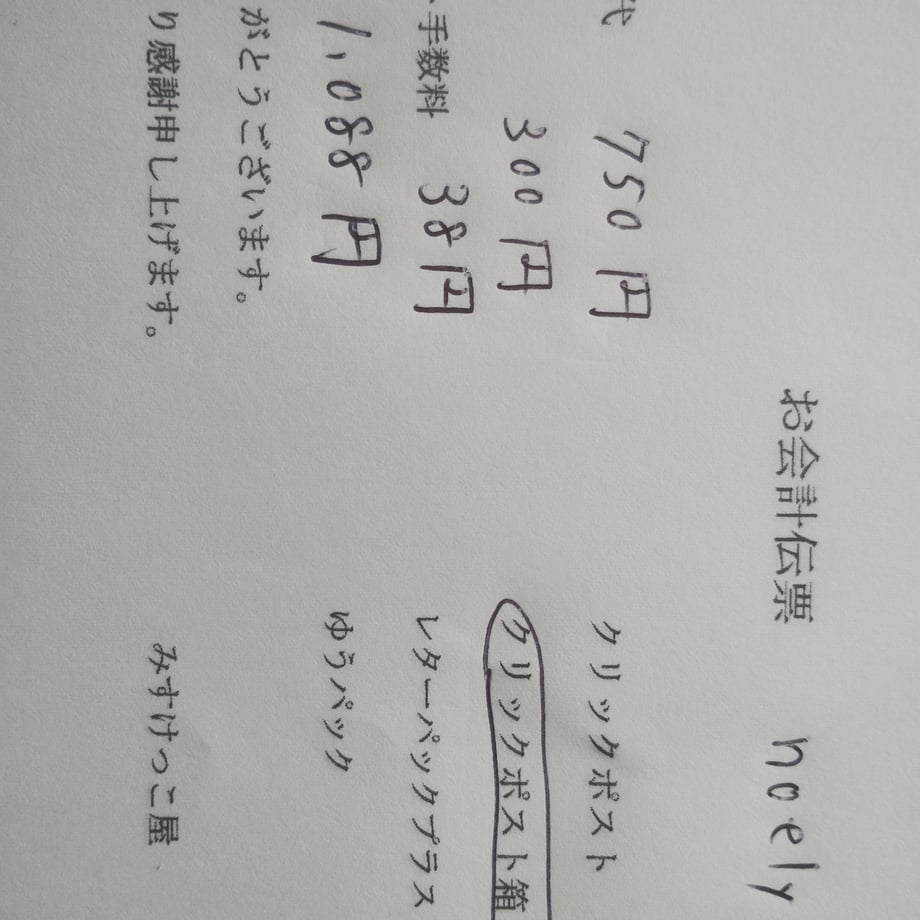 お会計伝票 noely
代 750円 クリックポスト
300円 クリックポスト箱
手数料 38円 レターパックプラス
1,088円 ゆうパック
がとうございます。
り感謝申し上げます。 みすけっこ屋